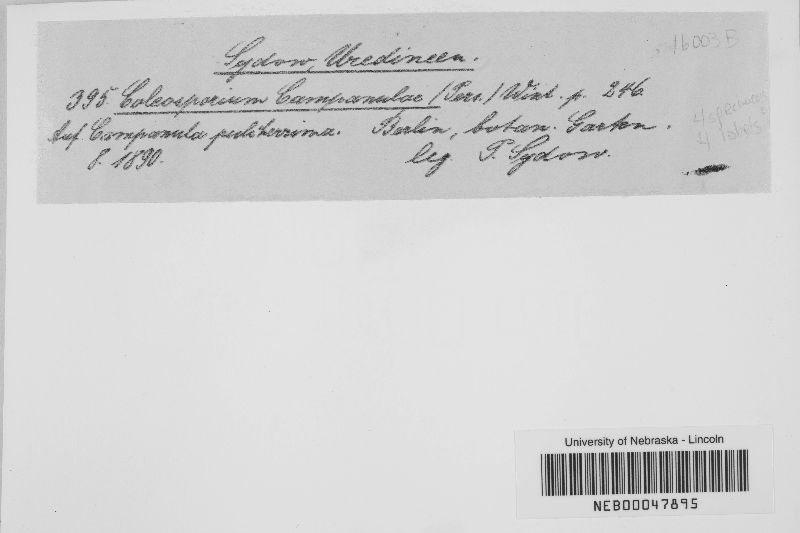 Sydow, Uredineen.
16003 B
395. Coleosporium Campanulae (Pers.) Wint. p. 246.
Auf Campanula pulcherrima. Berlin, botan. Garten.
8. 1890. leg P. Sydow.
4 specimens
4 labels
University of Nebraska - Lincoln
NEB00047895